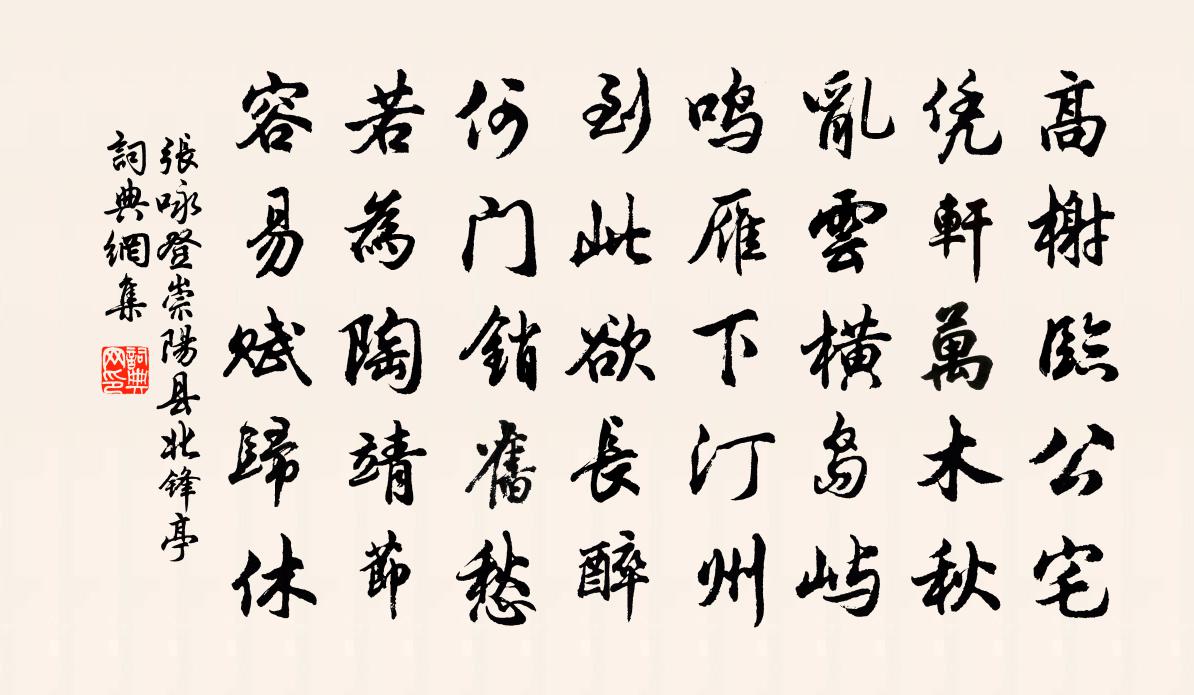 高榭臨公宅
凭軒萬木秋
亂雲橫島嶼
鸣雁下汀州
到此欲長醉
何门銷舊愁
若為陶靖節
容易賦歸休
張咏登崇陽县北锋亭
詞典網集
詞典
网印